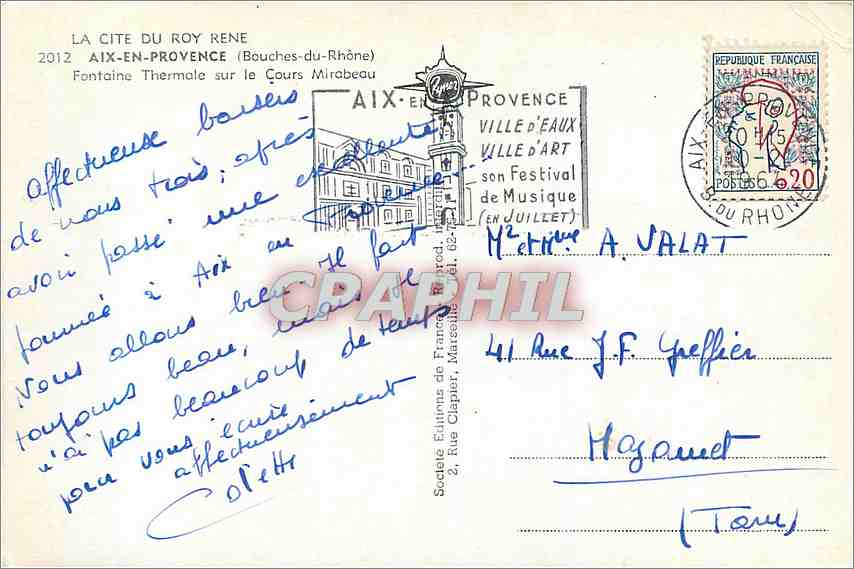 LA CITE DU ROY RENE
2012 AIX-EN-PROVENCE (Bouches-du-Rhône)
Fontaine Thermale sur le Cours Mirabeau
affectueux baisers
de nous trois, après
avoir passé une excellente
journée à Aix en Provence...
Nous allons bien. Il fait
toujours beau, mais je
n'ai pas beaucoup de temps
pour vous écrire
affectueusement
Colette
AIX-EN PROVENCE
VILLE D'EAUX
VILLE D'ART
son Festival
de Musique
(EN JUILLET)
REPUBLIQUE FRANÇAISE
POSTES 0,20
AIX-EN-PROVENCE
B. DU RHONE
Société Editions de France - Reprod. interdite
2, Rue Clapier, Marseille - Tél. 62-75
Mr et Mme A. VALAT
41 Rue J.F. Greffier
Mazamet
(Tarn)
CPAPHIL